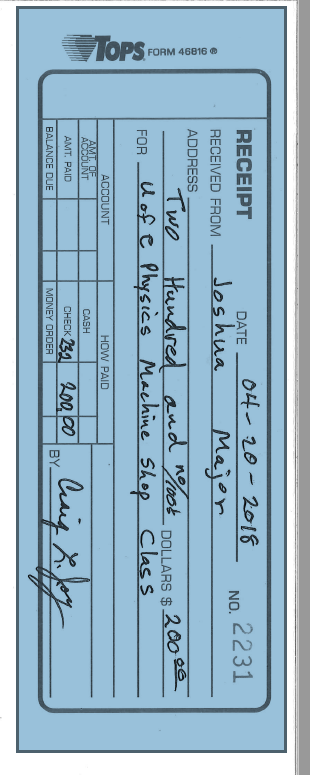 TOPS FORM 46816 ®
RECEIPT DATE 04-20-2018 NO. 2231
RECEIVED FROM Joshua Major
ADDRESS
Two Hundred and no/100$ DOLLARS $ 200.00
FOR U of C Physics Machine Shop Class
ACCOUNT HOW PAID
AMT. OF ACCOUNT CASH
AMT. PAID CHECK 232 200.00
BALANCE DUE MONEY ORDER BY Craig L. Joy